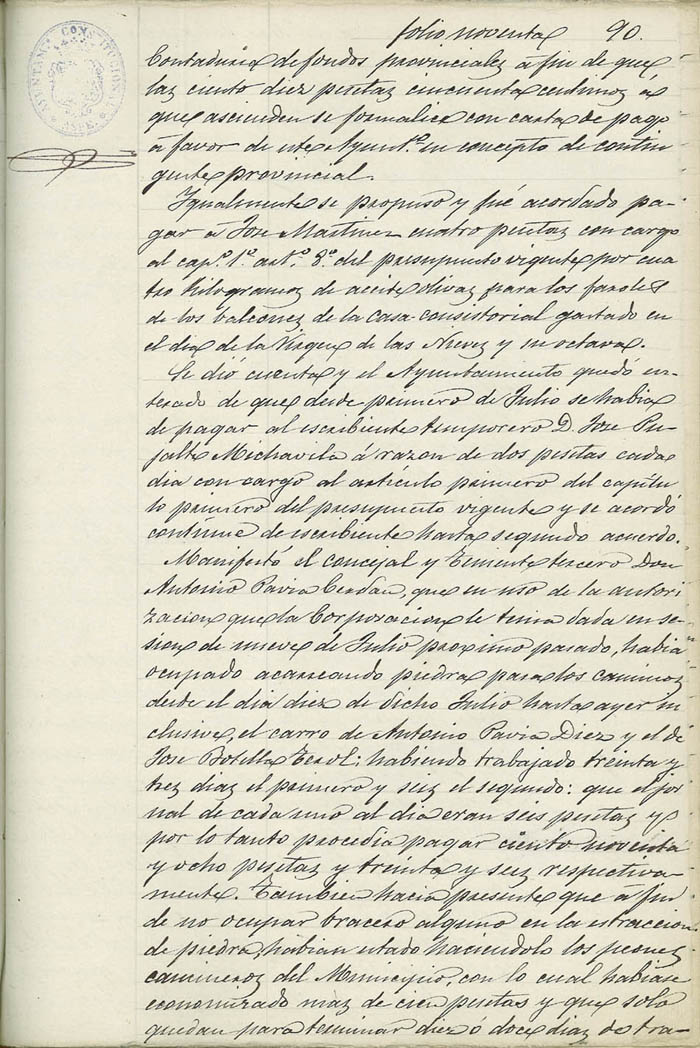 folio noventa 90.
AYUNTAMTO CONSTITUCIONAL
ASPE.
Contaduria de fondos provinciales á fin de que
las ciento diez pesetas cincuenta centimos á
que ascienden se formalice con carta de pago
á favor de este Ayunt.º en concepto de contin
gente provincial.
Igualmente se propuso y fué acordado pa-
gar á Jose Martinez cuatro pesetas con cargo
al cap.º 1º art.º 8º del presupuesto vigente por cua
tro Kilogramos de aceite olivas para los faroles
de los balcones de la casa-consistorial gastado en
el dia de la Virgen de las Nieves y su octava.
Se dió cuenta y el Ayuntamiento quedó en-
terado de que desde primero de Julio se habia
de pagar al escribiente temporero D. Jose Pu-
jalte Michavila á razon de dos pesetas cada
dia con cargo al articulo primero del capitu
lo primero del presupuesto vigente y se acordó
continue de escribiente hasta segundo acuerdo.
Manifestó el concejal y Teniente tercero Don
Antonio Pavia Cerdan, que en uso de la autori
zacion que la Corporacion le tenia dada en se-
sion de nueve de Julio proximo pasado, habia
ocupado acarreando piedra para los caminos
desde el dia diez de dicho Julio hasta ayer in
clusive, el carro de Antonio Pavia Diez y el de
Jose Botella Terol; habiendo trabajado treinta y
tres dias el primero y seis el segundo: que el jor
nal de cada uno al dia eran seis pesetas y
por lo tanto procedia pagar ciento noventa
y ocho pesetas y treinta y seis respectiva-
mente. Tambien hacia presente que á fin
de no ocupar bracero alguno en la estraccion
de piedra, habian estado haciendolo los peones
camineros del Municipio, con lo cual habiase
economizado mas de cien pesetas y que solo
quedan para terminar diez ó doce dias de tra-